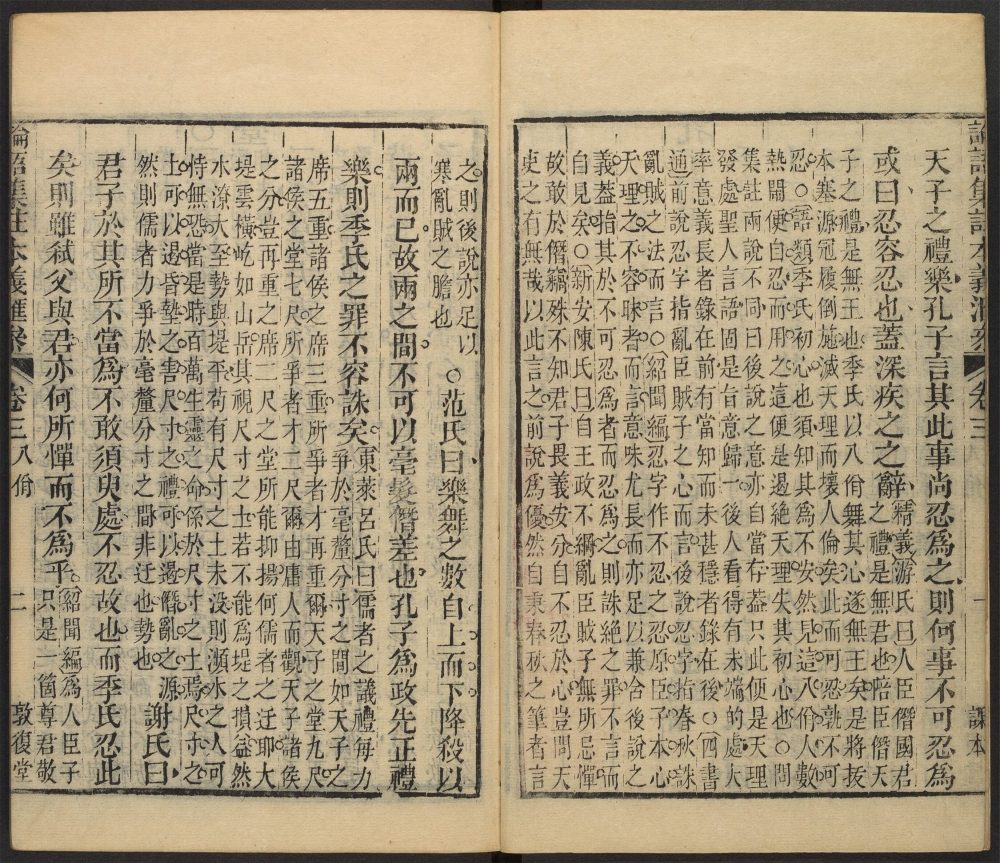 論語集註本義滙參
卷三
八佾
一
課本
天子之禮樂孔子言其此事尚忍爲之則何事不可忍爲
或曰忍容忍也蓋深疾之之辭
精義游氏曰人臣僭國君
之禮是無君也陪臣僭天
子之禮是無王也季氏以八佾舞其心遂無王矣是將拔
本塞源冠履倒施滅天理而壞人倫矣此而可忍孰不可
忍○語類季氏初心也須知其爲不安然見這八佾人數
熱鬧便自忍而用之這便是遏絕天理失其初心也○問
集註兩說不同曰後說之意亦自當存蓋只此便是天理
發處聖人言語固是旨意歸一後人看得有未端的處大
率意義長者錄在前有當知而未甚穩者錄在後○四書
通前說忍字指亂臣賊子之心而言後說忍字指春秋誅
亂賊之法而言○紹聞編忍作不忍之忍原臣子本心
天理之不容昧者而言意味尤長而亦足以兼舍後說之
義蓋指其於不可忍爲者而忍爲之則誅絕之罪不言而
自見矣○新安陳氏曰自王政不綱亂臣賊子無所忌憚
故敢於僭竊殊不知君子畏義安分自不忍於心豈問天
吏之有無哉以此之前說爲優然自秉春秋之筆者言
之則後說亦足以
寒亂賊之膽也
○范氏曰樂舞之數自上而下降殺以
兩而已故兩之間不可以毫髮僭差也孔子爲政先正禮
樂則季氏之罪不容誅矣
東萊呂氏曰儒者之議禮每力
爭於毫釐分寸之間如天子之
席五重諸侯之席三重所爭者才再重爾天子之堂九尺
諸侯之堂七尺所爭者才二尺爾由庸人而觀天子諸侯
之分豈再重之席二尺之堂所能抑揚何儒者之迂耶大
堤雲橫屹如山岳其視尺寸之土若不能爲堤之損益然
水潦大至勢與堤平苟有尺寸之土未沒則瀕水之人可
恃無恐當是時百萬生靈之命係於尺寸之土焉尺寸之
土可以遏昏墊之害尺寸之禮可以遏僭亂之源
然則儒者力爭於毫釐分寸之間非迂也勢也
謝氏曰
君子於其所不當爲不敢須臾處不忍故也而季氏忍此
矣則雖弒父與君亦何所憚而不爲乎
紹聞編爲人臣子
只是一箇尊君敬
論語集註本義滙參
卷三
八佾
二
敦復堂